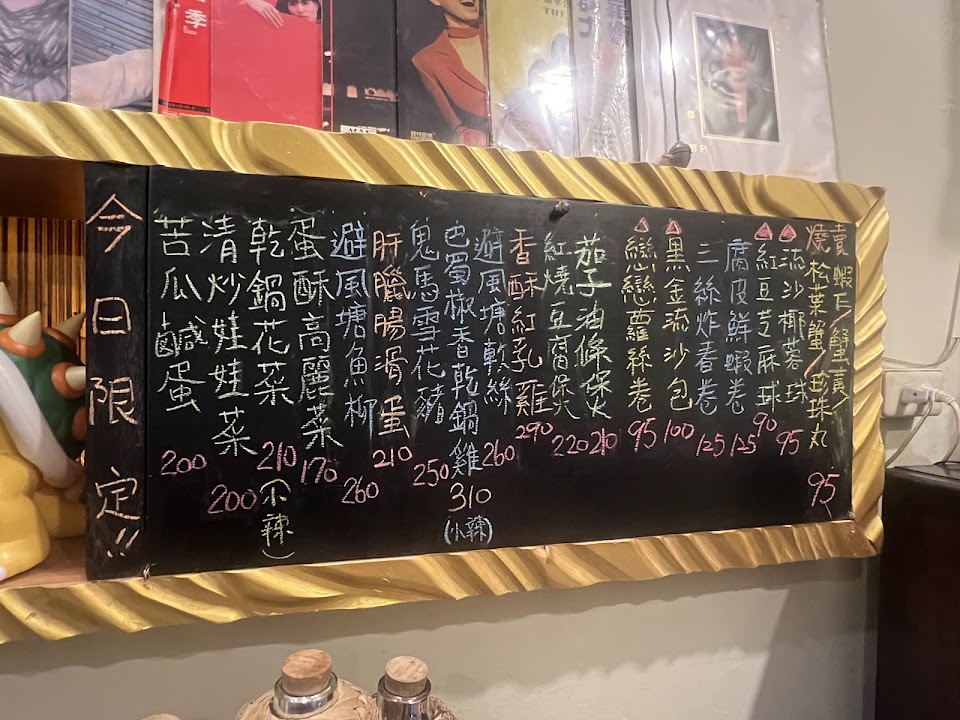 今日限定!!
苦瓜鹹蛋 200
清炒娃娃菜 200
乾鍋花菜 210 (小辣)
蛋酥高麗菜 170
避風塘魚柳 260
肝臘腸滑蛋 210
鬼馬雪花豬 250
巴蜀椒香乾鍋雞 310 (小辣)
避風塘乾絲 260
香酥紅乳雞 290
紅燒豆腐煲 220
茄子油條煲 210
戀戀蘿絲卷 95
黑金流沙包 100
三絲炸春卷 125
腐皮鮮蝦卷 125
紅豆芝麻球 90
流沙椰蓉球 95
燒賣
蝦仁/蟹黃/
松葉蟹/珍珠丸 95